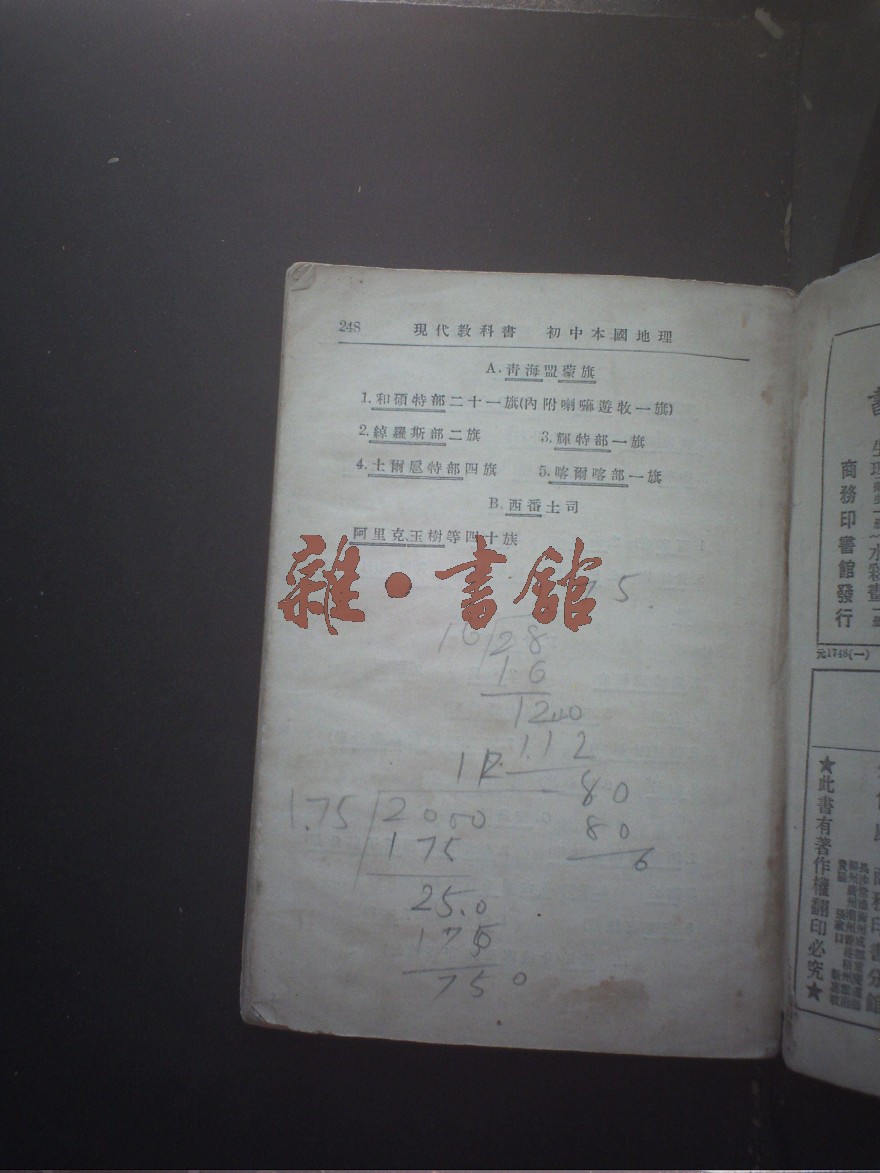 248 現代教科書 初中本國地理
A. 青海盟蒙旗
1. 和碩特部二十一旗(內附喇嘛遊牧一旗)
2. 綽羅斯部二旗 3. 輝特部一旗
4. 土爾扈特部四旗 5. 喀爾喀部一旗
B. 西番土司
阿里克、玉樹等四十族
雜·書館
5
16 28
16
12
1.12
80
80
1.75 2000
175
25.0
175
750
商務印書館發行
元1748(一)
★此書有著作權翻印必究★